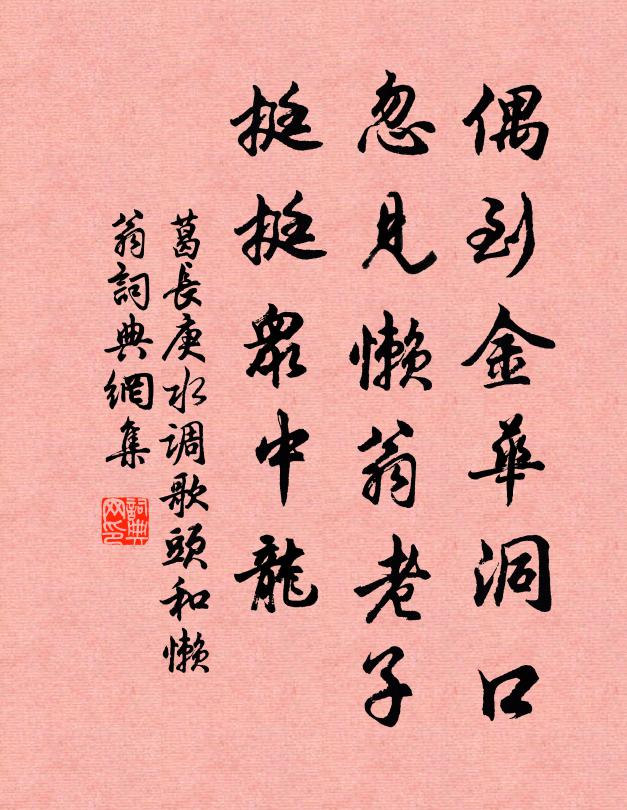 偶到金華洞口
忽見懶翁老子
挺挺眾中龍
葛長庚水调歌頭和懶
翁詞典網集
詞典
网印